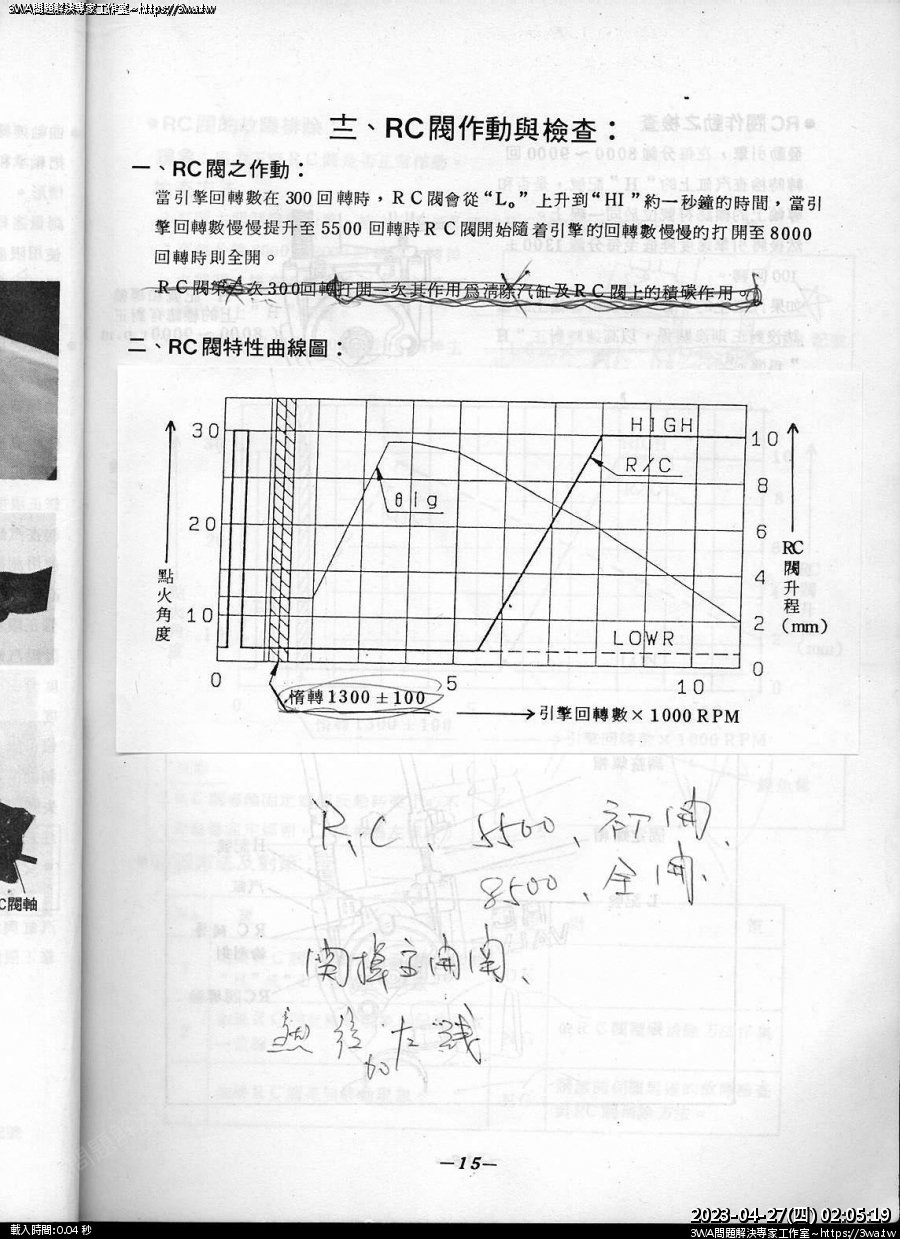 3WA問題解決專家工作室~https://3wa.tw
十二、RC閥作動與檢查：
一、RC閥之作動：
當引擎回轉數在 300 回轉時，RC閥會從“L。”上升到“HI”約一秒鐘的時間，當引
擎回轉數慢慢提升至 5500 回轉時RC閥開始隨着引擎的回轉數慢慢的打開至8000
回轉時則全開。
RC閥第一次300回轉打開一次其作用爲清除汽缸及RC閥上的積碳作用。
二、RC閥特性曲線圖：
HIGH
R/C
θig
LOWR
30
20
10
點火角度
10
8
6
4
2
0
RC閥升程(mm)
0
5
10
惰轉1300±100
引擎回轉數×1000 RPM
R、C、5500、訂開、
8500、全開、
C閥軸
—15—
2023-04-27(四) 02:05:19
載入時間:0.04 秒
3WA問題解決專家工作室~https://3wa.tw